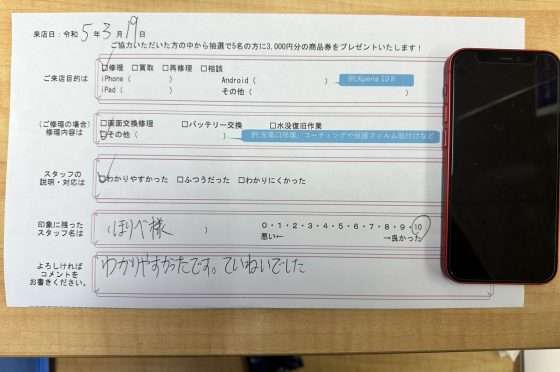 来店日：令和 5 年 3 月 19 日
ご協力いただいた方の中から抽選で5名の方に3,000円分の商品券をプレゼントいたします！
ご来店目的は
□修理 □買取 □再修理 □相談
iPhone（ ） Android（ ） 例:Xperia 10Ⅱ
iPad（ ） その他（ ）
（ご修理の場合）
修理内容は
□画面交換修理 □バッテリー交換 □水没復旧作業
□その他（ ） 例:充電口修理、コーティングや保護フィルム貼付けなど
スタッフの
説明・対応は
□わかりやすかった □ふつうだった □わかりにくかった
印象に残った
スタッフ名は
ほりべ様 ）
0・1・2・3・4・5・6・7・8・9・10
悪い← →良かった
よろしければ
コメントを
お書きください。
わかりやすかったです。ていねいでした